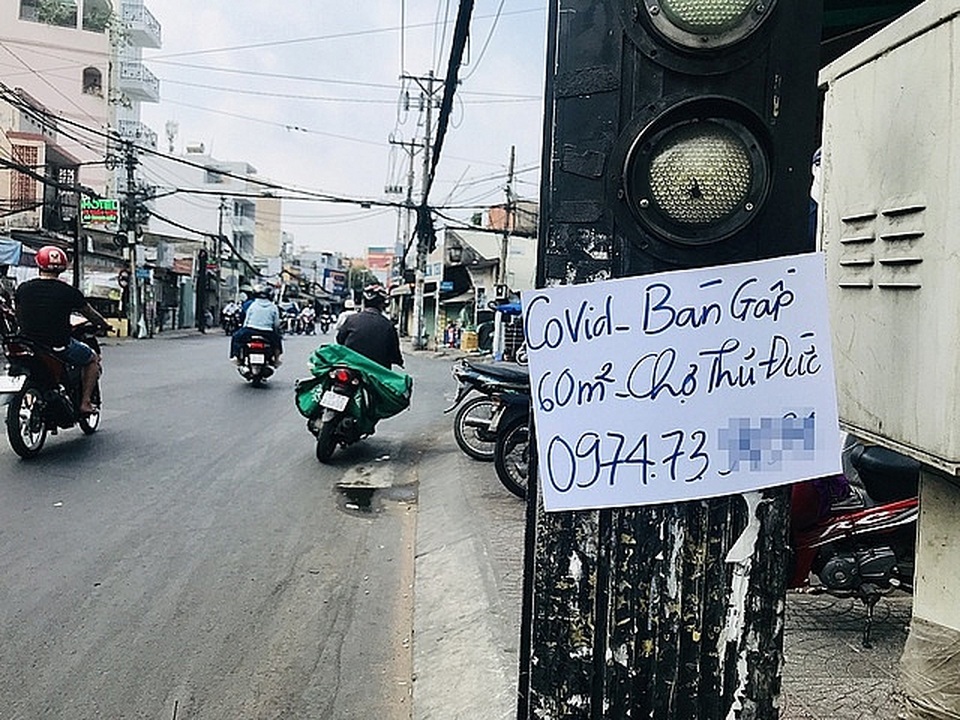 HOTEL
Covid - Bán Gấp
60m² - Chợ Thủ Đức
0974.73